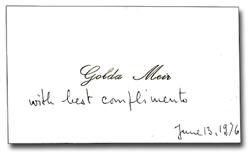 Golda Meir
with best compliments
June 13, 1976